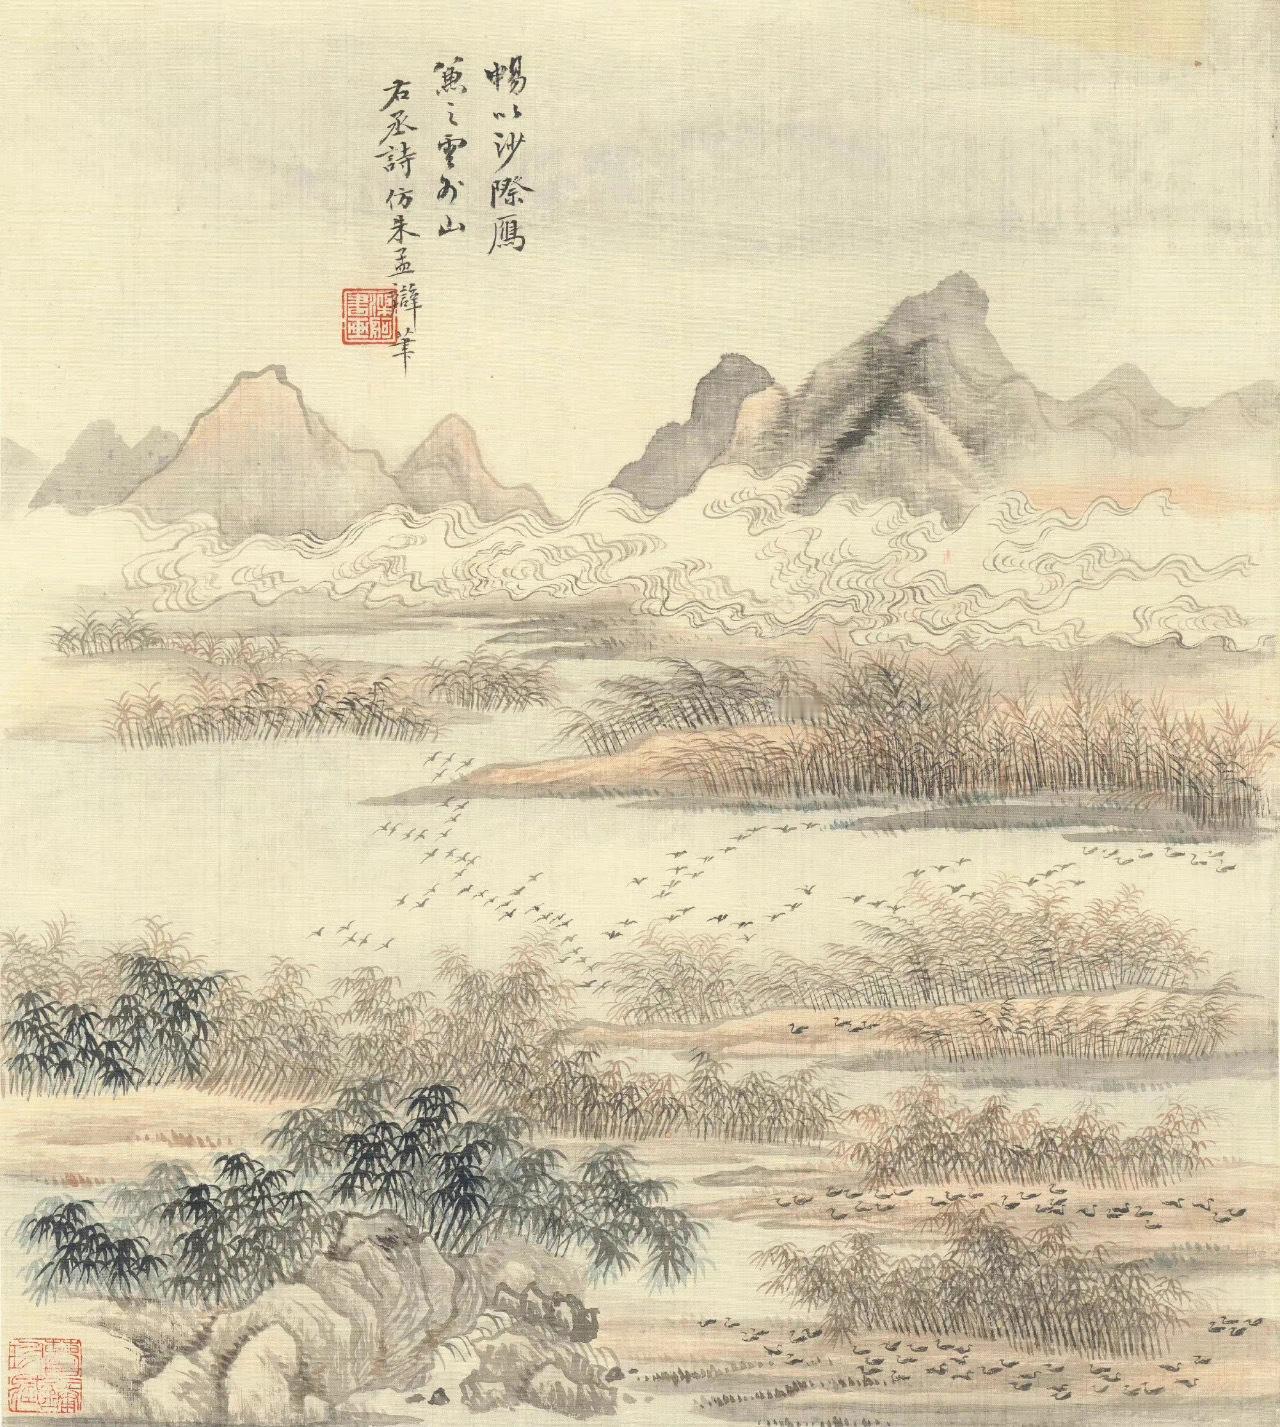 暢以沙際鴈
兼之雲外山
右丞詩仿朱孟辯筆